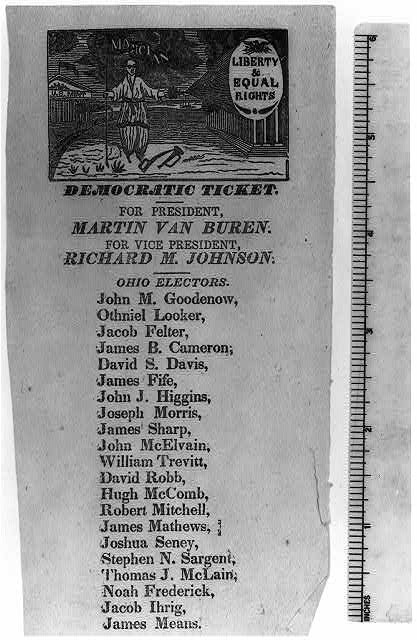 MAGICIAN
LIBERTY
&
EQUAL
RIGHTS
DEMOCRATIC TICKET.
FOR PRESIDENT,
MARTIN VAN BUREN.
FOR VICE PRESIDENT,
RICHARD M. JOHNSON.
OHIO ELECTORS.
John M. Goodenow,
Othniel Looker,
Jacob Felter,
James B. Cameron,
David S. Davis,
James Fife,
John J. Higgins,
Joseph Morris,
James Sharp,
John McElvain,
William Trevitt,
David Robb,
Hugh McComb,
Robert Mitchell,
James Mathews,
Joshua Seney,
Stephen N. Sargent,
Thomas J. McLain,
Noah Frederick,
Jacob Ihrig,
James Means.
6
5
4
3
2
1
INCHES